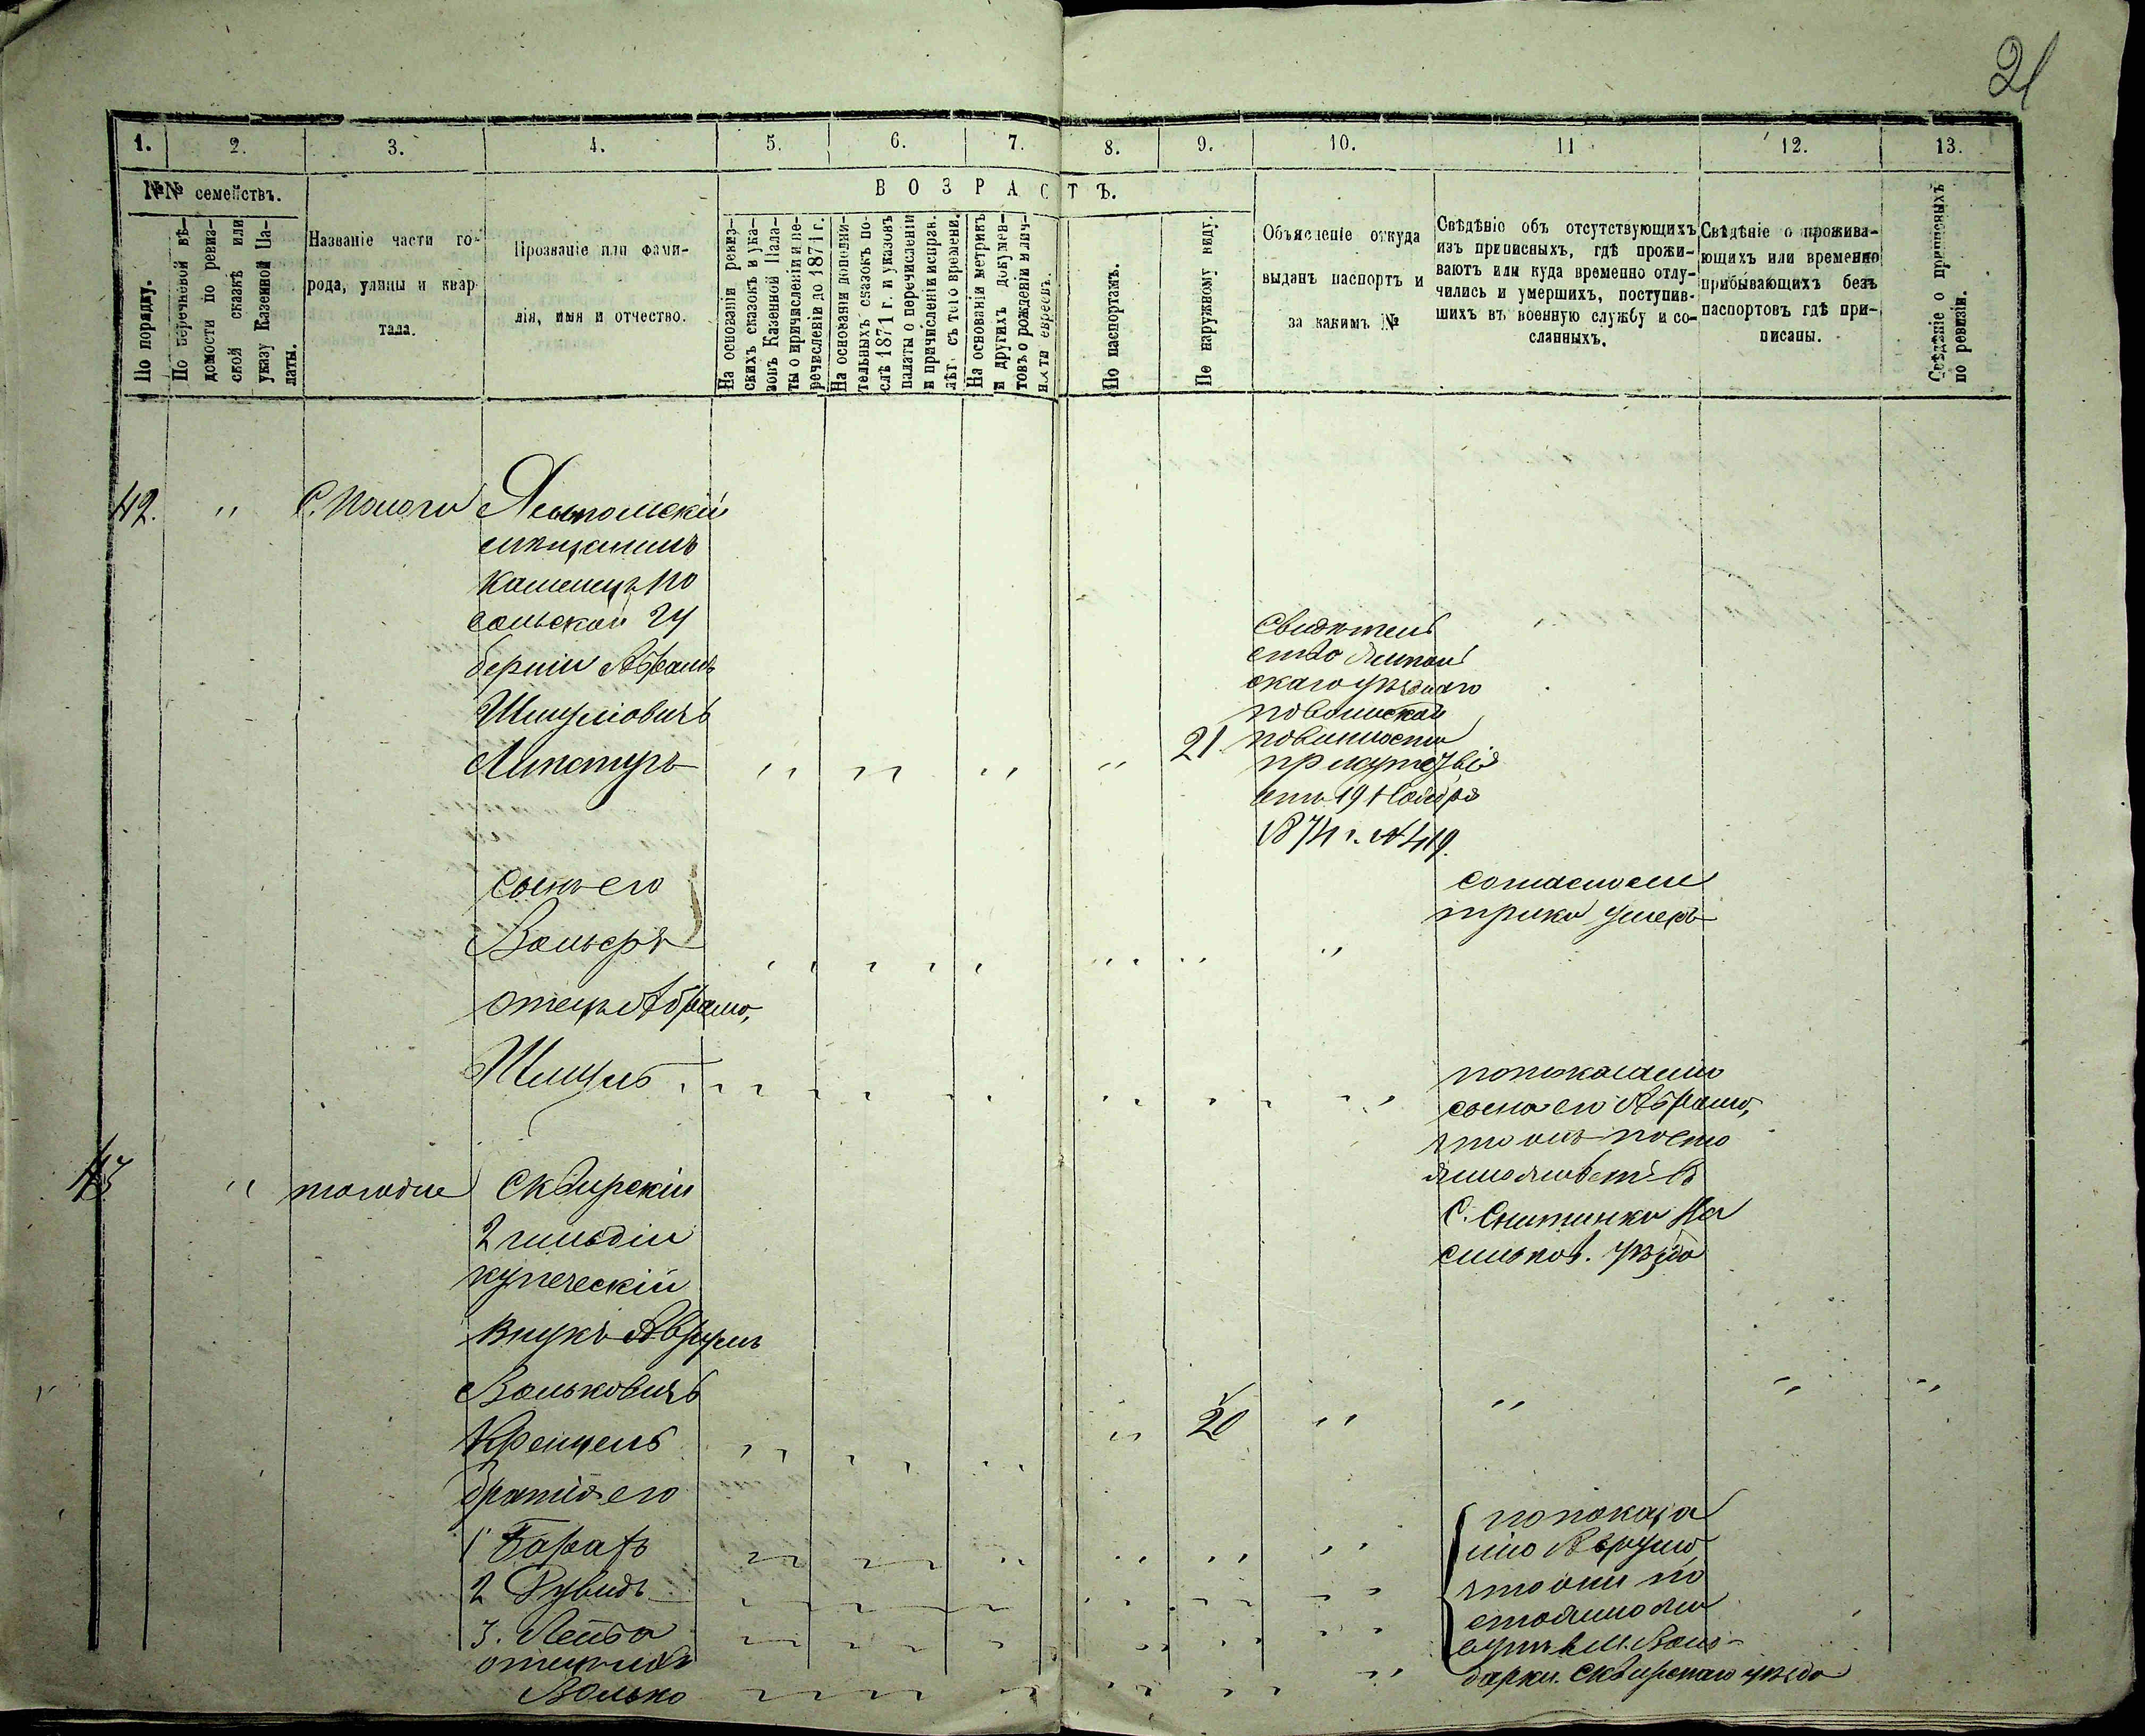 21
1. 2. 3. 4. 5. 6. 7. 8. 9. 10. 11 12. 13.
№№ семействъ.
В О З Р А С Т Ъ.
По порядку.
По перечневой вѣ-
домости по ревиз-
ской сказкѣ или
указу Казенной Па-
латы.
Названіе части го-
рода, улицы и квар-
тала.
Прозваніе или фами-
лія, имя и отчество.
На основаніи ревиз-
скихъ сказокъ и ука-
зовъ Казенной Пала-
ты о причисленіи и пе-
речисленіе до 1871 г.
На основаніи дополни-
тельныхъ сказокъ по-
слѣ 1871 г. и указовъ
палаты о перечисленіи
и причисленіи исправ.
лѣт. съ того времени.
На основаніи метрикъ
и другихъ докумен-
товъ о рожденіи и лѣч-
ности евреевъ.
По паспортамъ.
По наружному виду.
Объясненіе откуда
выданъ паспортъ и
за какимъ №
Свѣдѣніе объ отсутствующихъ
изъ приписныхъ, гдѣ прожи-
ваютъ или куда временно отлу-
чились и умершихъ, поступив-
шихъ въ военную службу и со-
сланныхъ.
Свѣдѣніе о прожива-
ющихъ или временно
прибывающихъ безъ
паспортовъ гдѣ при-
писаны.
Свѣдѣніе о приписныхъ
по ревизіи.
42. " С. Пологи
мѣщанинъ
Каменецъ По
дольской гу
берніи Абрамъ
Шмулiовичъ
21
Свидѣтель
ство
скаго уѣзднаго
по воинской
повинности
присутствія
отъ 19 Ноября
1874 г. № 419.
сынъ его
согласно ме
трики умеръ
отецъ Абрама,
Шмуль
по показанію
сына его Абрама,
что онъ посто
янно живетъ въ
С. Снитинки Ва
сильков. уѣзда
43 " тоже Сквирскій
2 гильдіи
купеческій
внукъ Аврумъ
Вольковичъ
Кренцель
20
братья его
1
2 Рувинъ
3. Лейба
отецъ ихъ
Волько
по показа
нію Аврума
что они по
стоянно жи
вутъ в М. Воло-
дарки. Сквирскаго уѣзда